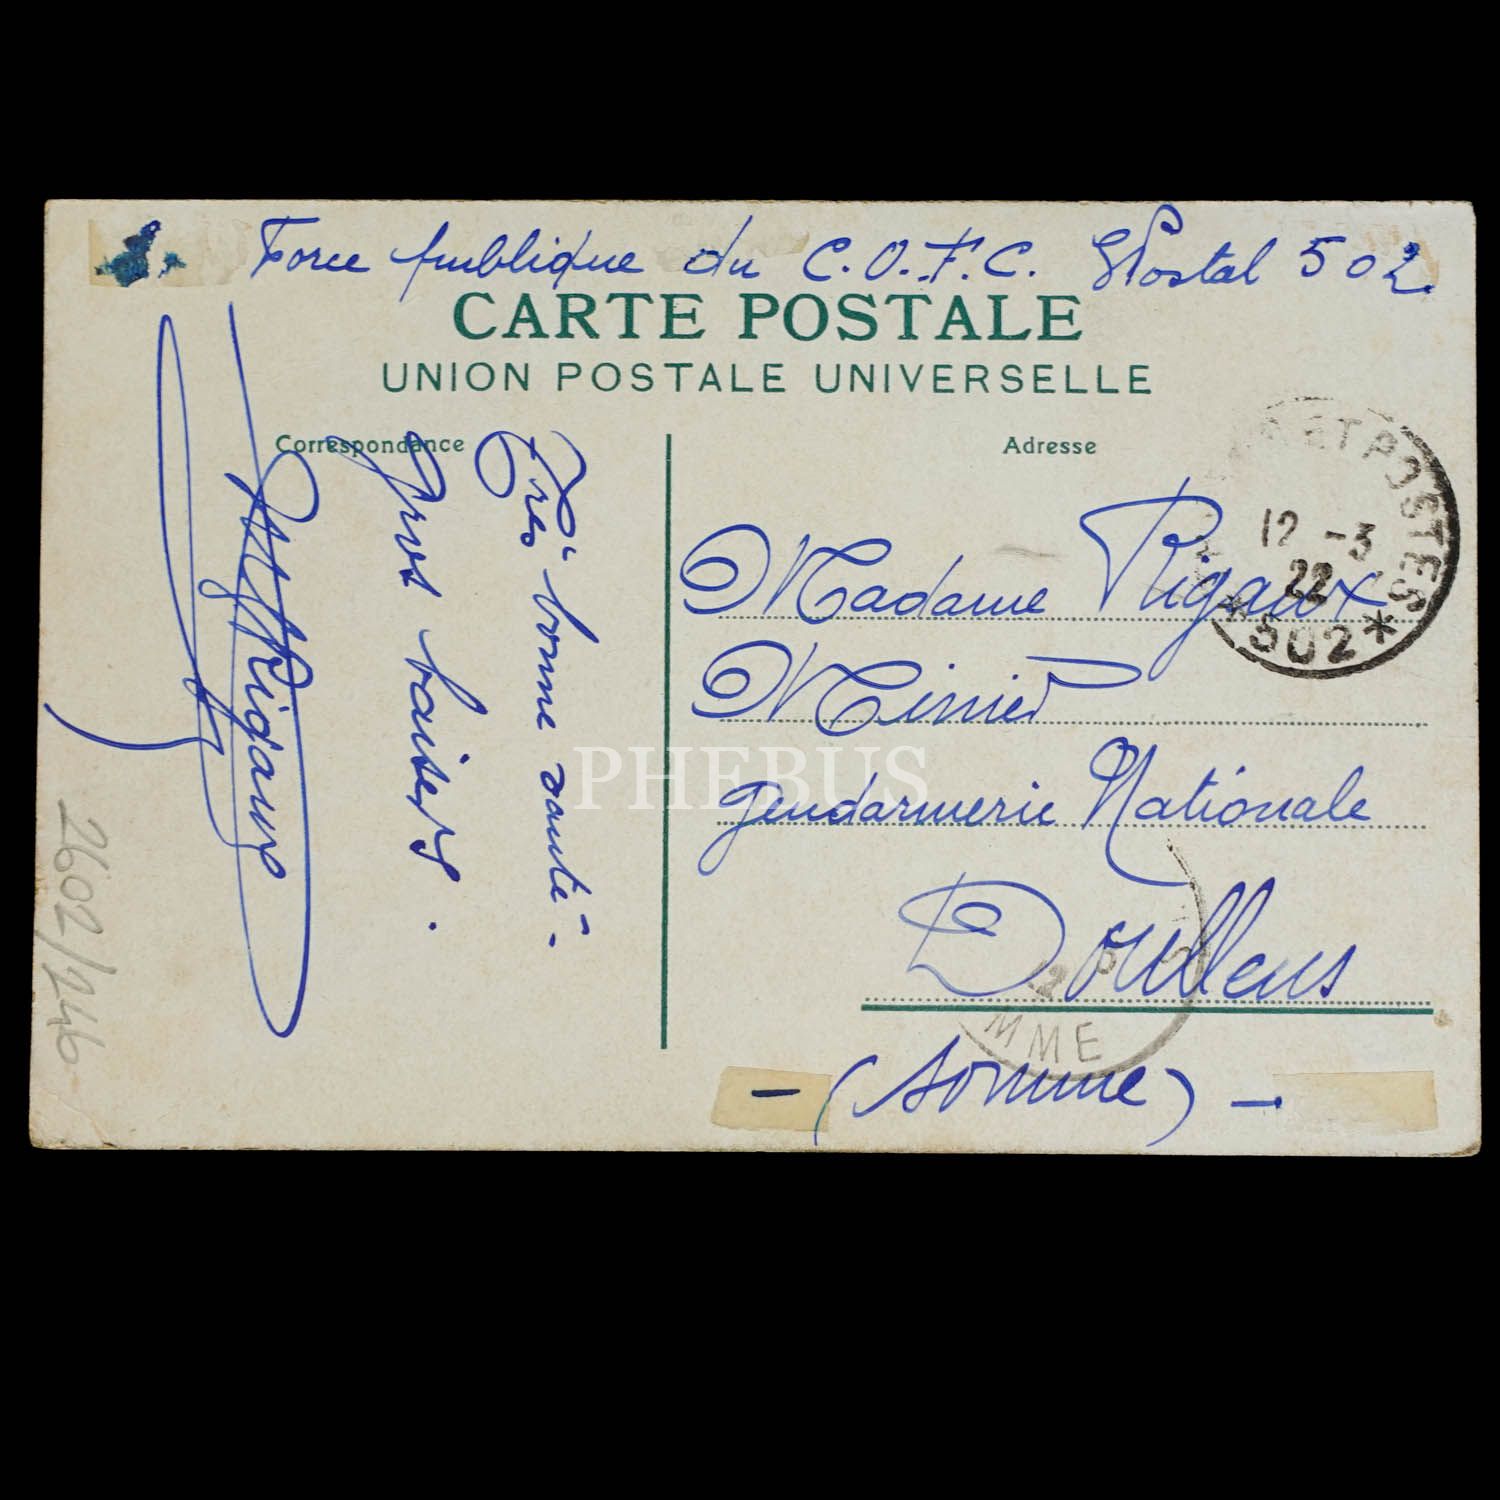 Force publique du C.O.F.C. SPostal 502.
CARTE POSTALE
UNION POSTALE UNIVERSELLE
Correspondance
Adresse
Très bonne santé -
gros baisers.
Rigaux
Madame Rigaux
Gendarmerie Nationale
Doullens
- (Somme) -
ET POSTES
12 -3
22
*502*
MME
PHEBUS
2602/446